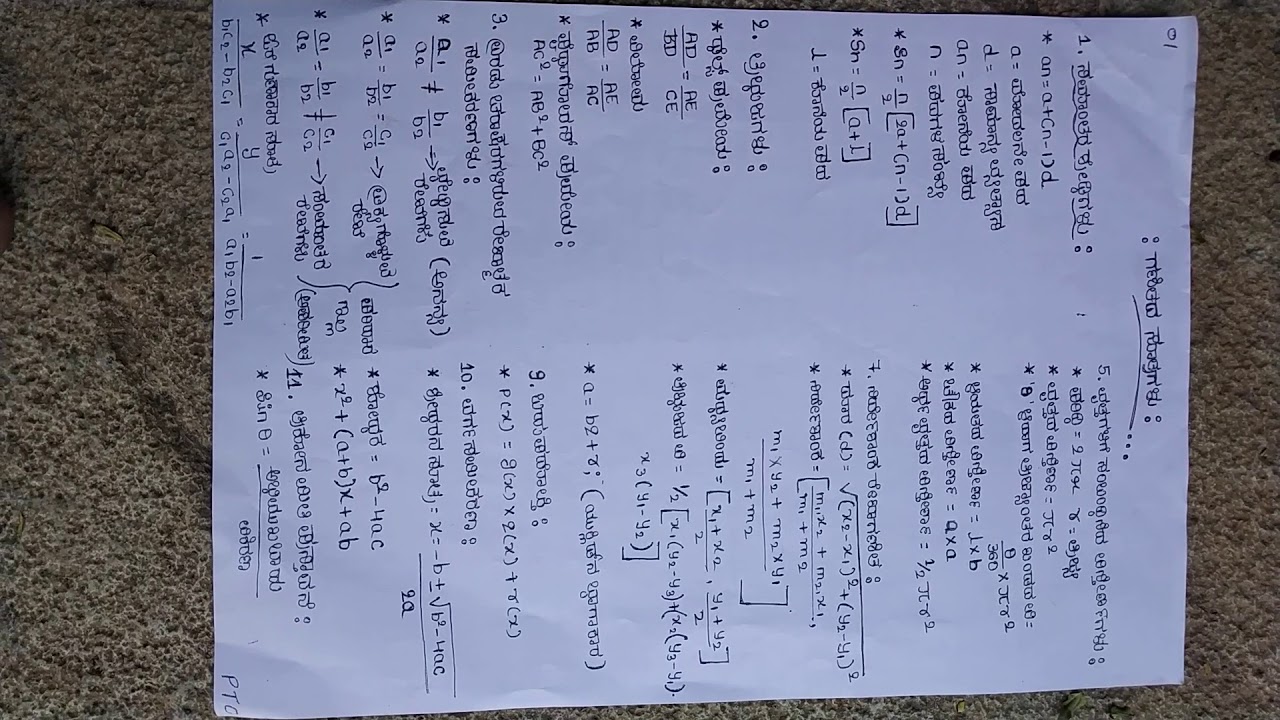 01
: ಗಣಿತದ ಸೂತ್ರಗಳು :
1. ಸಮಾಂತರ ಶ್ರೇಢಿಗಳು :
* an = a+(n-1)d
a = ಮೊದಲನೇ ಪದ
d = ಸಾಮಾನ್ಯ ವ್ಯತ್ಯಾಸ
an = ಕೊನೆಯ ಪದ
n = ಪದಗಳ ಸಂಖ್ಯೆ
* Sn = n/2 [2a+(n-1)d]
* Sn = n/2 [a+l]
l = ಕೊನೆಯ ಪದ
2. ತ್ರಿಭುಜಗಳು :
* ಥೇಲ್ಸ್ ಪ್ರಮೇಯ :
AD/BD = AE/CE
AD/AB = AE/AC
* ಪೈಥಾಗೊರಸ್ ಪ್ರಮೇಯ :
AC² = AB² + BC²
3.
ಸಮೀಕರಣಗಳು :
* a1/a2 ≠ b1/b2 →
ರೇಖೆಗಳು
* a1/a2 = b1/b2 = c1/c2 →
* a1/a2 = b1/b2 ≠ c1/c2 → ಸಮಾಂತರ
ರೇಖೆಗಳು
x/b1c2-b2c1 = y/c1a2-c2a1 = 1/a1b2-a2b1
5. ವೃತ್ತಗಳಿಗೆ ಸಂಬಂಧಿಸಿದ ವಿಸ್ತೀರ್ಣಗಳು :
* ಪರಿಧಿ = 2πr r = ತ್ರಿಜ್ಯ
* ವೃತ್ತದ ವಿಸ್ತೀರ್ಣ = πr²
* 'θ'
θ/360 × πr²
* ಆಯತದ ವಿಸ್ತೀರ್ಣ = l×b
* ಚೌಕದ ವಿಸ್ತೀರ್ಣ = a×a
* ಅರ್ಧ ವೃತ್ತದ ವಿಸ್ತೀರ್ಣ = 1/2 πr²
7. ನಿರ್ದೇಶಾಂಕ ರೇಖಾಗಣಿತ :
* ದೂರ (d) = √(x2-x1)²+(y2-y1)²
* ನಿರ್ದೇಶಾಂಕ = [m1x2+m2x1/m1+m2,
m1×y2+m2×y1/m1+m2]
* ಮಧ್ಯಬಿಂದು = [x1+x2/2, y1+y2/2]
* ತ್ರಿಭುಜದ ವಿ = 1/2 [x1(y2-y3)+(x1(y3-y1).
x3(y1-y2)]
* a = bq+r;
9. ಬಹುಪದೋಕ್ತಿ :
* P(x) = g(x)×2(x)+r(x)
10. ವರ್ಗ ಸಮೀಕರಣ :
* ಶ್ರೀಧರನ ಸೂತ್ರ = x = -b±√b²-4ac/2a
* ಶೋಧಕ = b²-4ac
* x²+(a+b)x+ab
11. ತ್ರಿಕೋನ ಮಿತಿ ಪ್ರಸ್ತಾವನೆ :
* sin θ = ಅಭಿಮುಖ ಬಾಹು/ವಿಕರ್ಣ
PTO